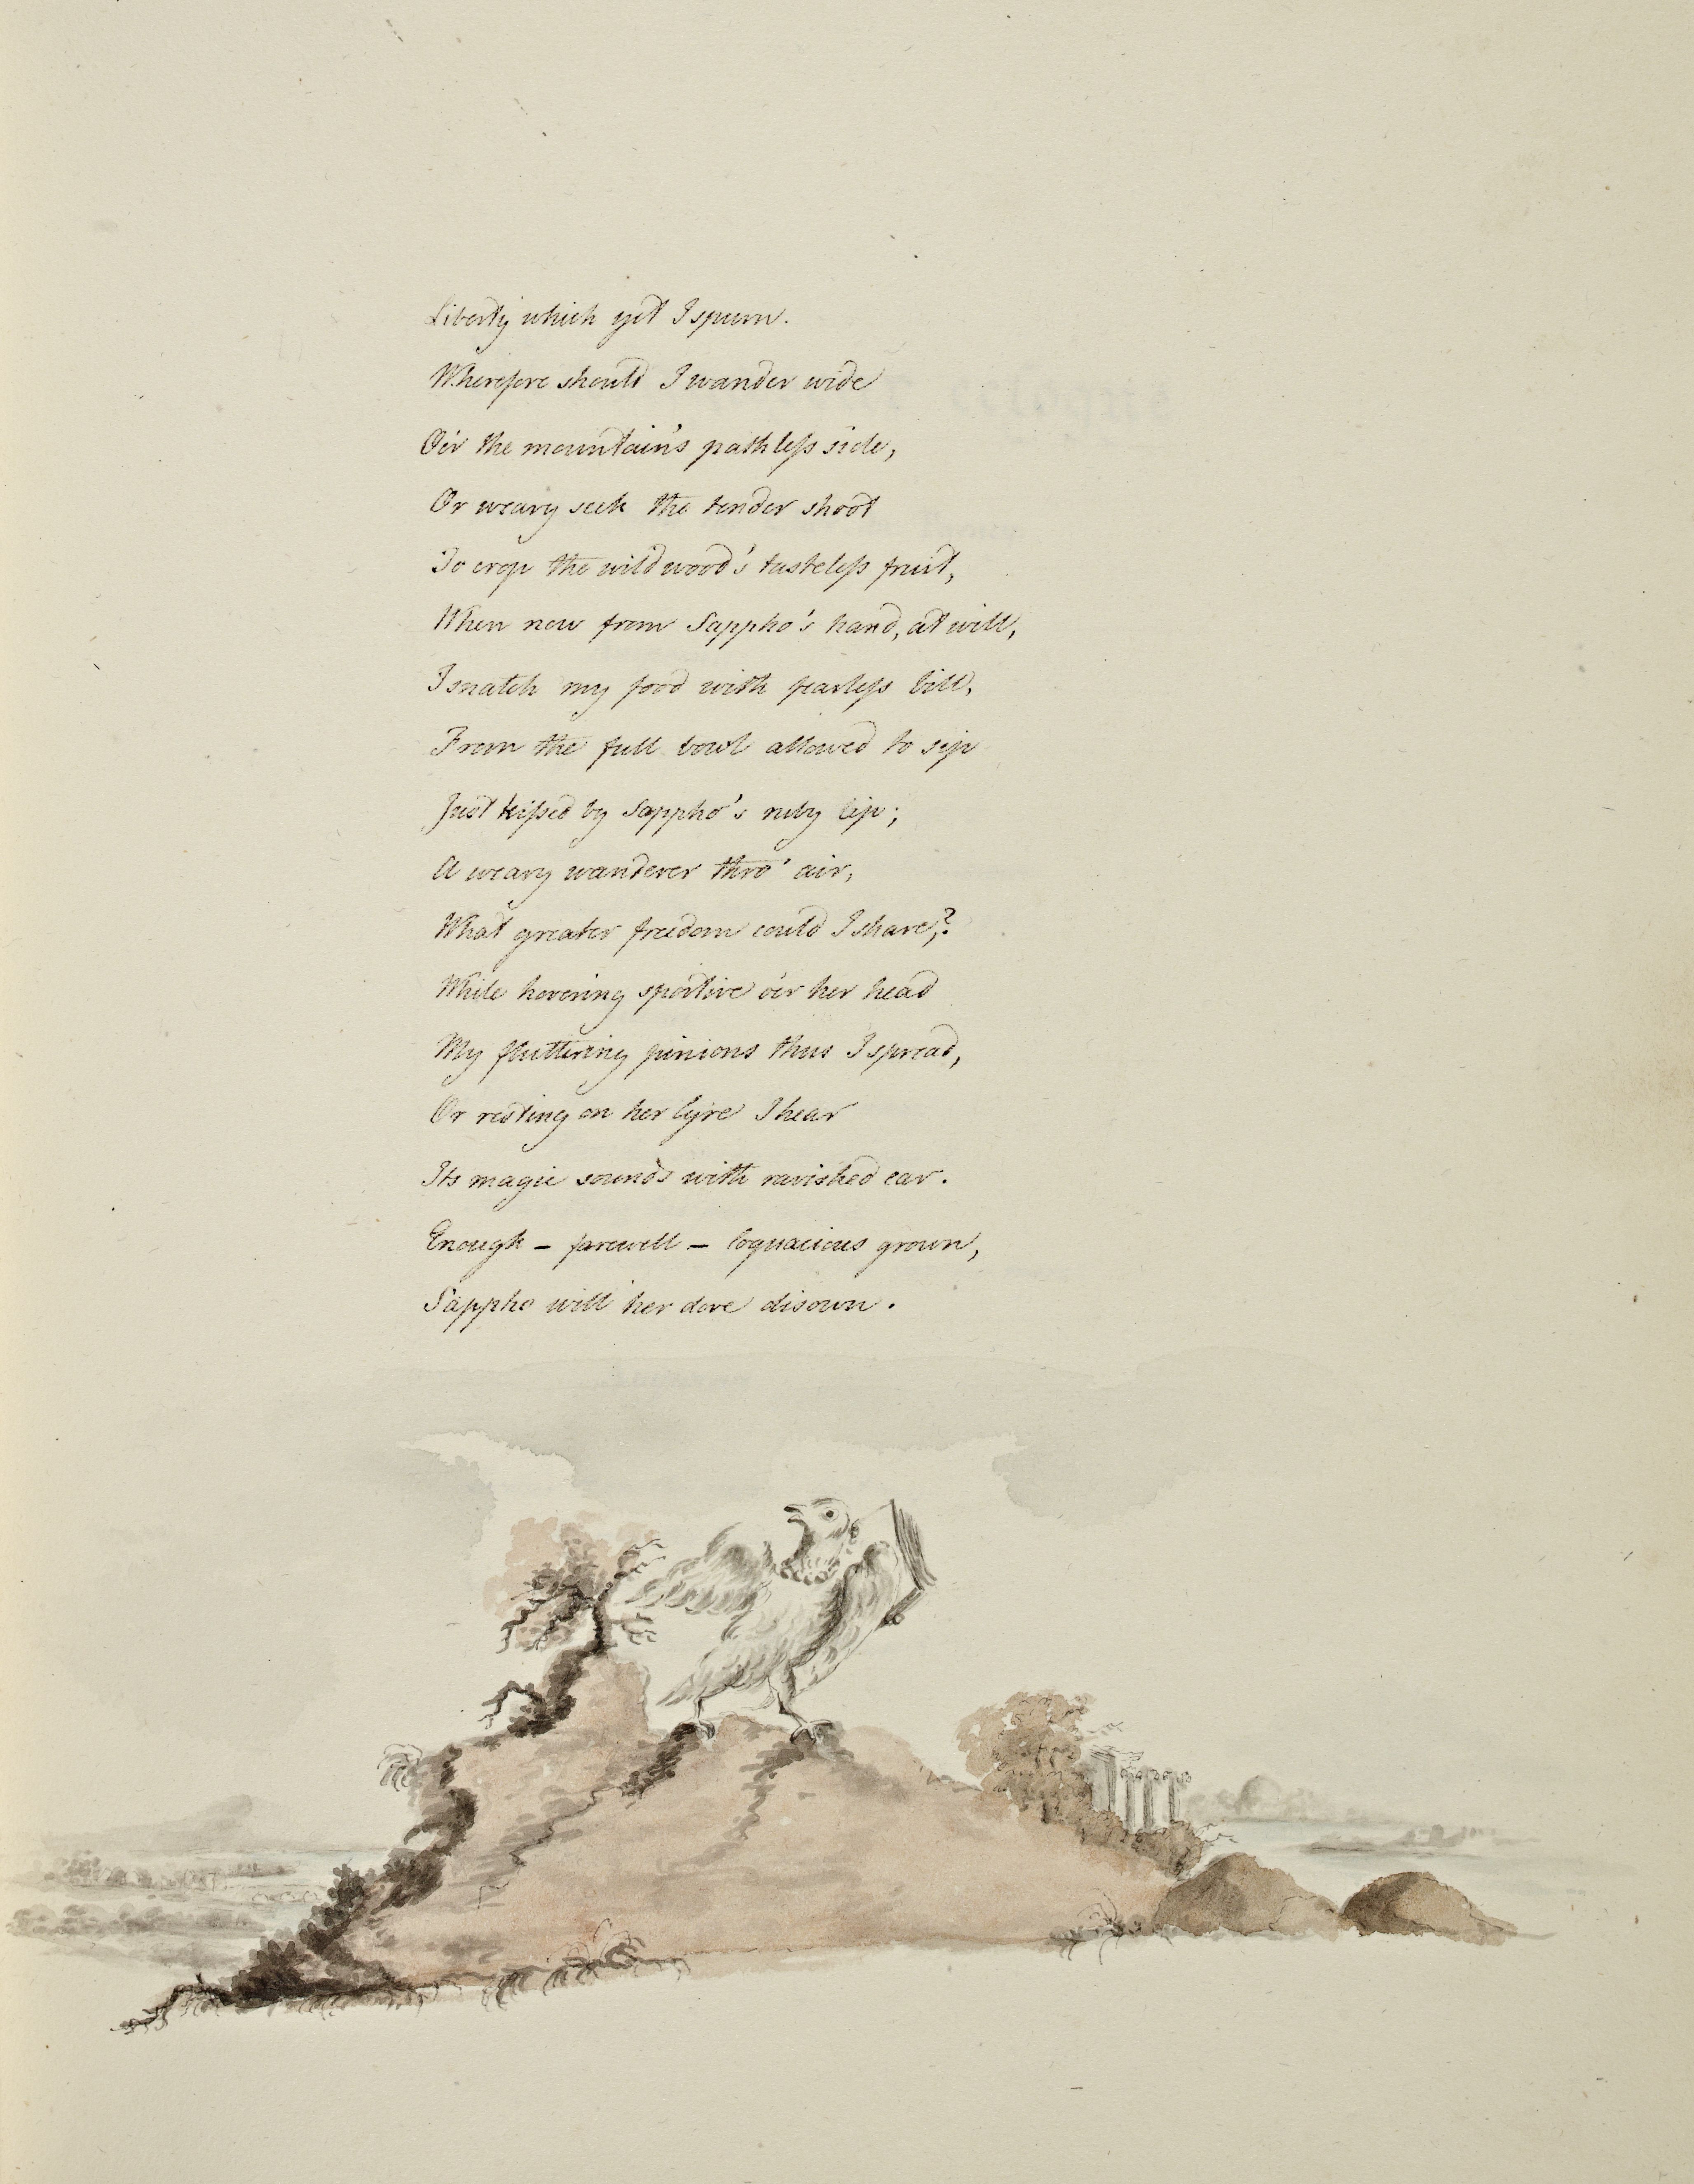 Liberty which yet I spurn.
Wherefore should I wander wide
O'er the mountain's pathleſs side,
Or weary seek the tender shoot
To crop the wild wood's tasteleſs fruit,
When now from Sappho's hand, at will,
I snatch my food with fearleſs bill,
From the full bowl allowed to sip
Just kiſsed by Sappho's ruby lip;
A weary wanderer thro' air,
What greater freedom could I share,?
While hovering sportive o'er her head
My fluttering pinions thus I spread,
Or resting on her lyre I hear
Its magic sounds with ravished ear.
Enough – farewell – loquacious grown,
Sappho will her dove disown.